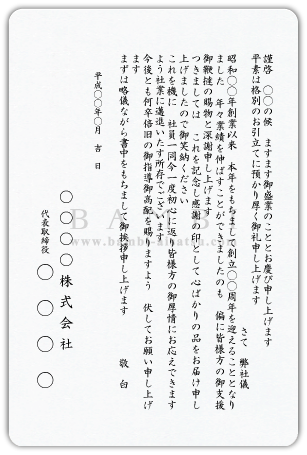 謹啓　○○の候　ますます御盛業のこととお慶び申し上げます
平素は格別のお引立てに預かり厚く御礼申し上げます
さて　弊社儀
昭和○○年創業以来　本年をもちまして創立○○周年を迎えることとなり
ました　年々業績を伸ばすことができましたのも　偏に皆様方の御支援
御鞭撻の賜物と深謝申し上げます
つきましては　これを記念し感謝の印として心ばかりの品をお届け申し
上げましたので御笑納ください
これを機に　社員一同今一度初心に返り皆様方の御厚情にお応えできます
よう社業に邁進いたす所存でございます
今後とも何卒倍旧の御指導御高配を賜りますよう　伏してお願い申し上げ
ます
まずは略儀ながら書中をもちまして御挨拶申し上げます
敬白
平成○○年○月　吉日
○○○○株式会社
代表取締役　○○○○